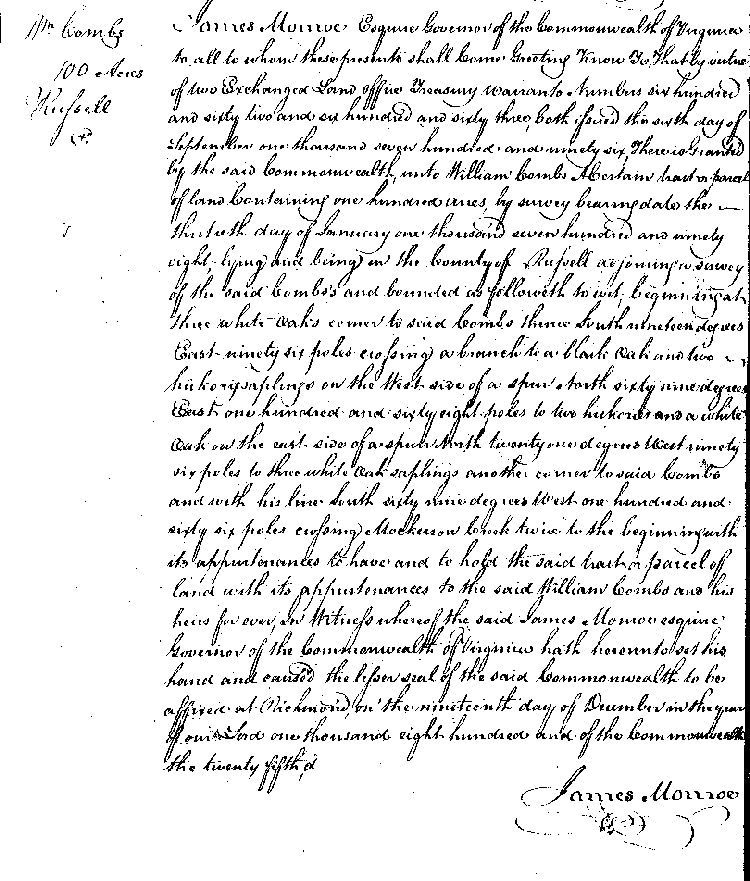 Wm Combs
100 Acres
Russell
James Monroe Esquire Governor of the Commonwealth of Virginia
to all to whom these presents shall Come Greeting Know Ye That by virtue
of two Exchanged Land office Treasury warrants Numbers six hundred
and sixty two and six hundred and sixty three, both issued the sixth day of
September one thousand seven hundred and ninety six, There is Granted
by the said Commonwealth, unto William Combs A Certain tract or parcel
of land Containing one hundred acres, by survey bearing date the
thirtieth day of January one thousand seven hundred and ninety
eight, lying and being in the County of Russell adjoining a survey
of the said Combs's and bounded as followeth to wit, beginning at
three white Oaks corner to said Combs thence South nineteen degrees
East ninety six poles crossing a branch to a black Oak and two
hickory saplings on the West side of a spur North sixty nine degrees
East one hundred and sixty eight poles to two hickories and a white
Oak on the east side of a spur North twenty one degrees West ninety
six poles to three white Oak saplings another corner to said Combs
and with his line South sixty nine degrees West one hundred and
sixty six poles crossing Mockerson Creek twice to the beginning with
its appurtenances to have and to hold the said tract or parcel of
land with its appurtenances to the said William Combs and his
heirs for ever, in Witness whereof the said James Monroe esquire
Governor of the Commonwealth of Virginia hath hereunto set his
hand and caused the lesser seal of the said Commonwealth to be
affixed at Richmond, on the nineteenth day of December in the year
of our Lord one thousand eight hundred and of the Commonwealth
the twenty fifth,
James Monroe